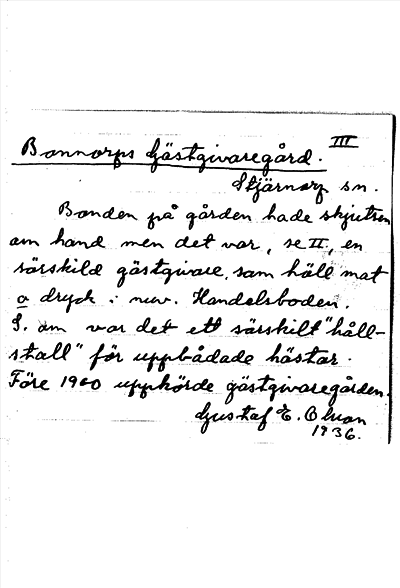 III
Bonnorps Gästgivaregård.
Stjärnorp sn.
Bonden på gården hade skjutsen
om hand men det var, se II, en
särskild gästgivare, som höll mat
o dryck i nuv. Handelsboden.
S. om var det ett särskilt "håll-
stall" för uppbådade hästar.
Före 1900 upphörde gästgivaregården.
Gustaf E. Olson
1936.